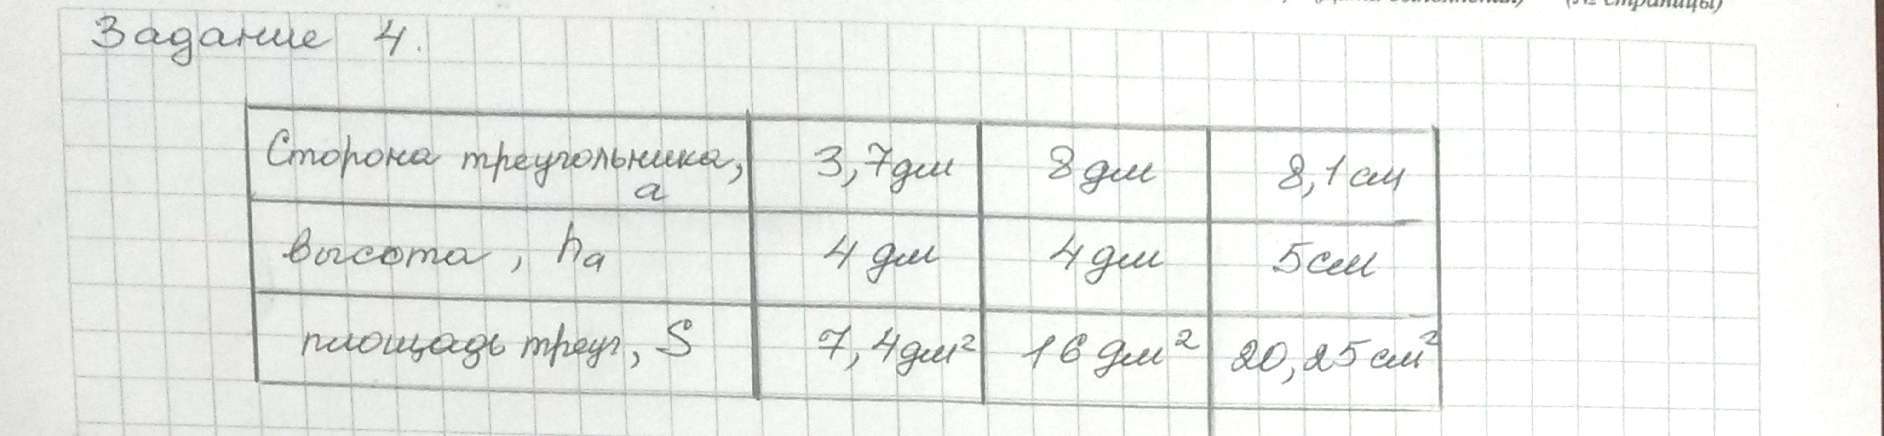 (№ страницы)
Задание 4.
Сторона треугольника, a 3,7дм 8дм 8,1см
высота, ha 4дм 4дм 5см
площадь треуг, S 7,4дм² 16дм² 20,25см²